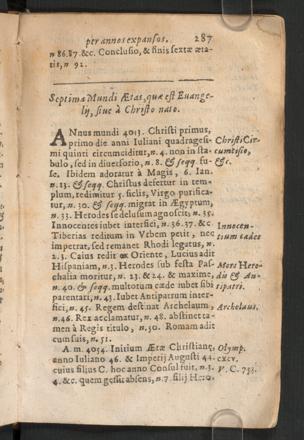 per annos expansos. 287
n 86.87. &c. Conclusio, & finis sextæ æta-
tis, n 92.
Septima Mundi Ætas, quæ est Evange-
lij, sive à Christo nato.
ANnus mundi 4013. Christi primus,
primo die anni Iuliani quadragesi-
mi quinti circumciditur, n. 4. non in sta-
bulo, sed in diversorio, n. 8. & seqq. fu-
se. Ibidem adoratur à Magis, 6. Ian.
n. 13. & seqq. Christus defertur in tem-
plum, redimitur 5. siclis, Virgo purifica-
tur, n. 30. & seqq. migrat in Ægyptum,
n. 33. Herodes se delusum agnoscit, n. 35.
Innocentes iubet interfici, n. 36.37. &c
Tiberius reditum in Vrbem petit, nec
impetrat, sed remanet Rhodi legatus, n.
2.3. Caius redit ex Oriente, Lucius adit
Hispaniam, n. 3. Herodes sub festa Pas-
chalia moritur, n. 23. & 24. & maxime,
n. 40. & seqq. multorum cæde iubet sibi
parentari, n. 43. Iubet Antipatrum inter-
fici, n. 45. Regem destinat Archelaum,
n. 46. Rex acclamatur, n. 48. abstinet ta-
men à Regis titulo, n. 50. Romam adit
cum suis, n. 51.
A. m. 4054. Initium Ætæ Christianæ,
anno Iuliano 46. & Imperij Augusti 44.
cuius filius C. hoc anno Consul fuit, n. 3.
4. &c. quem gessit absens, n. 7. filij Hero-
Christi Cir-
cumcisio,
&c.
Innocen-
tium cædes
Mors Hero-
dis & An-
tipatri.
Archelaus.
Olymp.
CXCV.
V. C. 753.